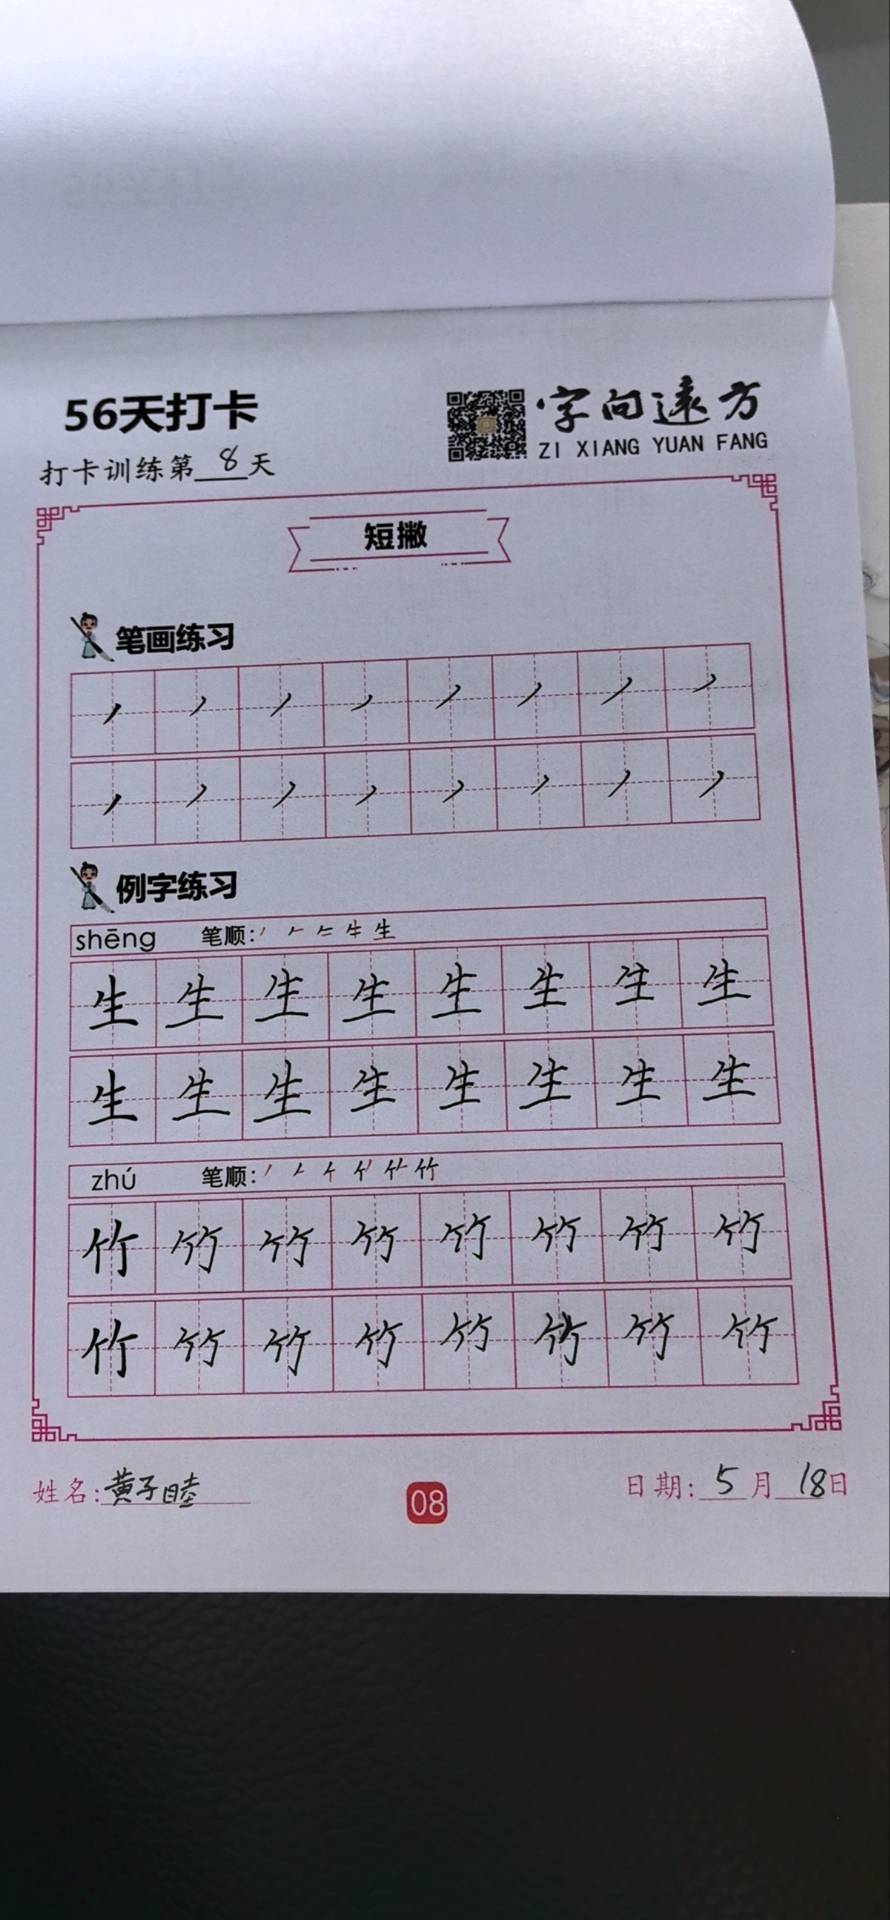 56天打卡
字向远方
ZI XIANG YUAN FANG
打卡训练第 8 天
短撇
笔画练习
丿 丿 丿 丿 丿 丿 丿 丿
丿 丿 丿 丿 丿 丿 丿 丿
例字练习
shēng 笔顺: 生
生 生 生 生 生 生 生 生
生 生 生 生 生 生 生 生
zhú 笔顺: 竹
竹 竹 竹 竹 竹 竹 竹 竹
竹 竹 竹 竹 竹 竹 竹 竹
姓名: 黄子睦
08
日期: 5 月 18 日